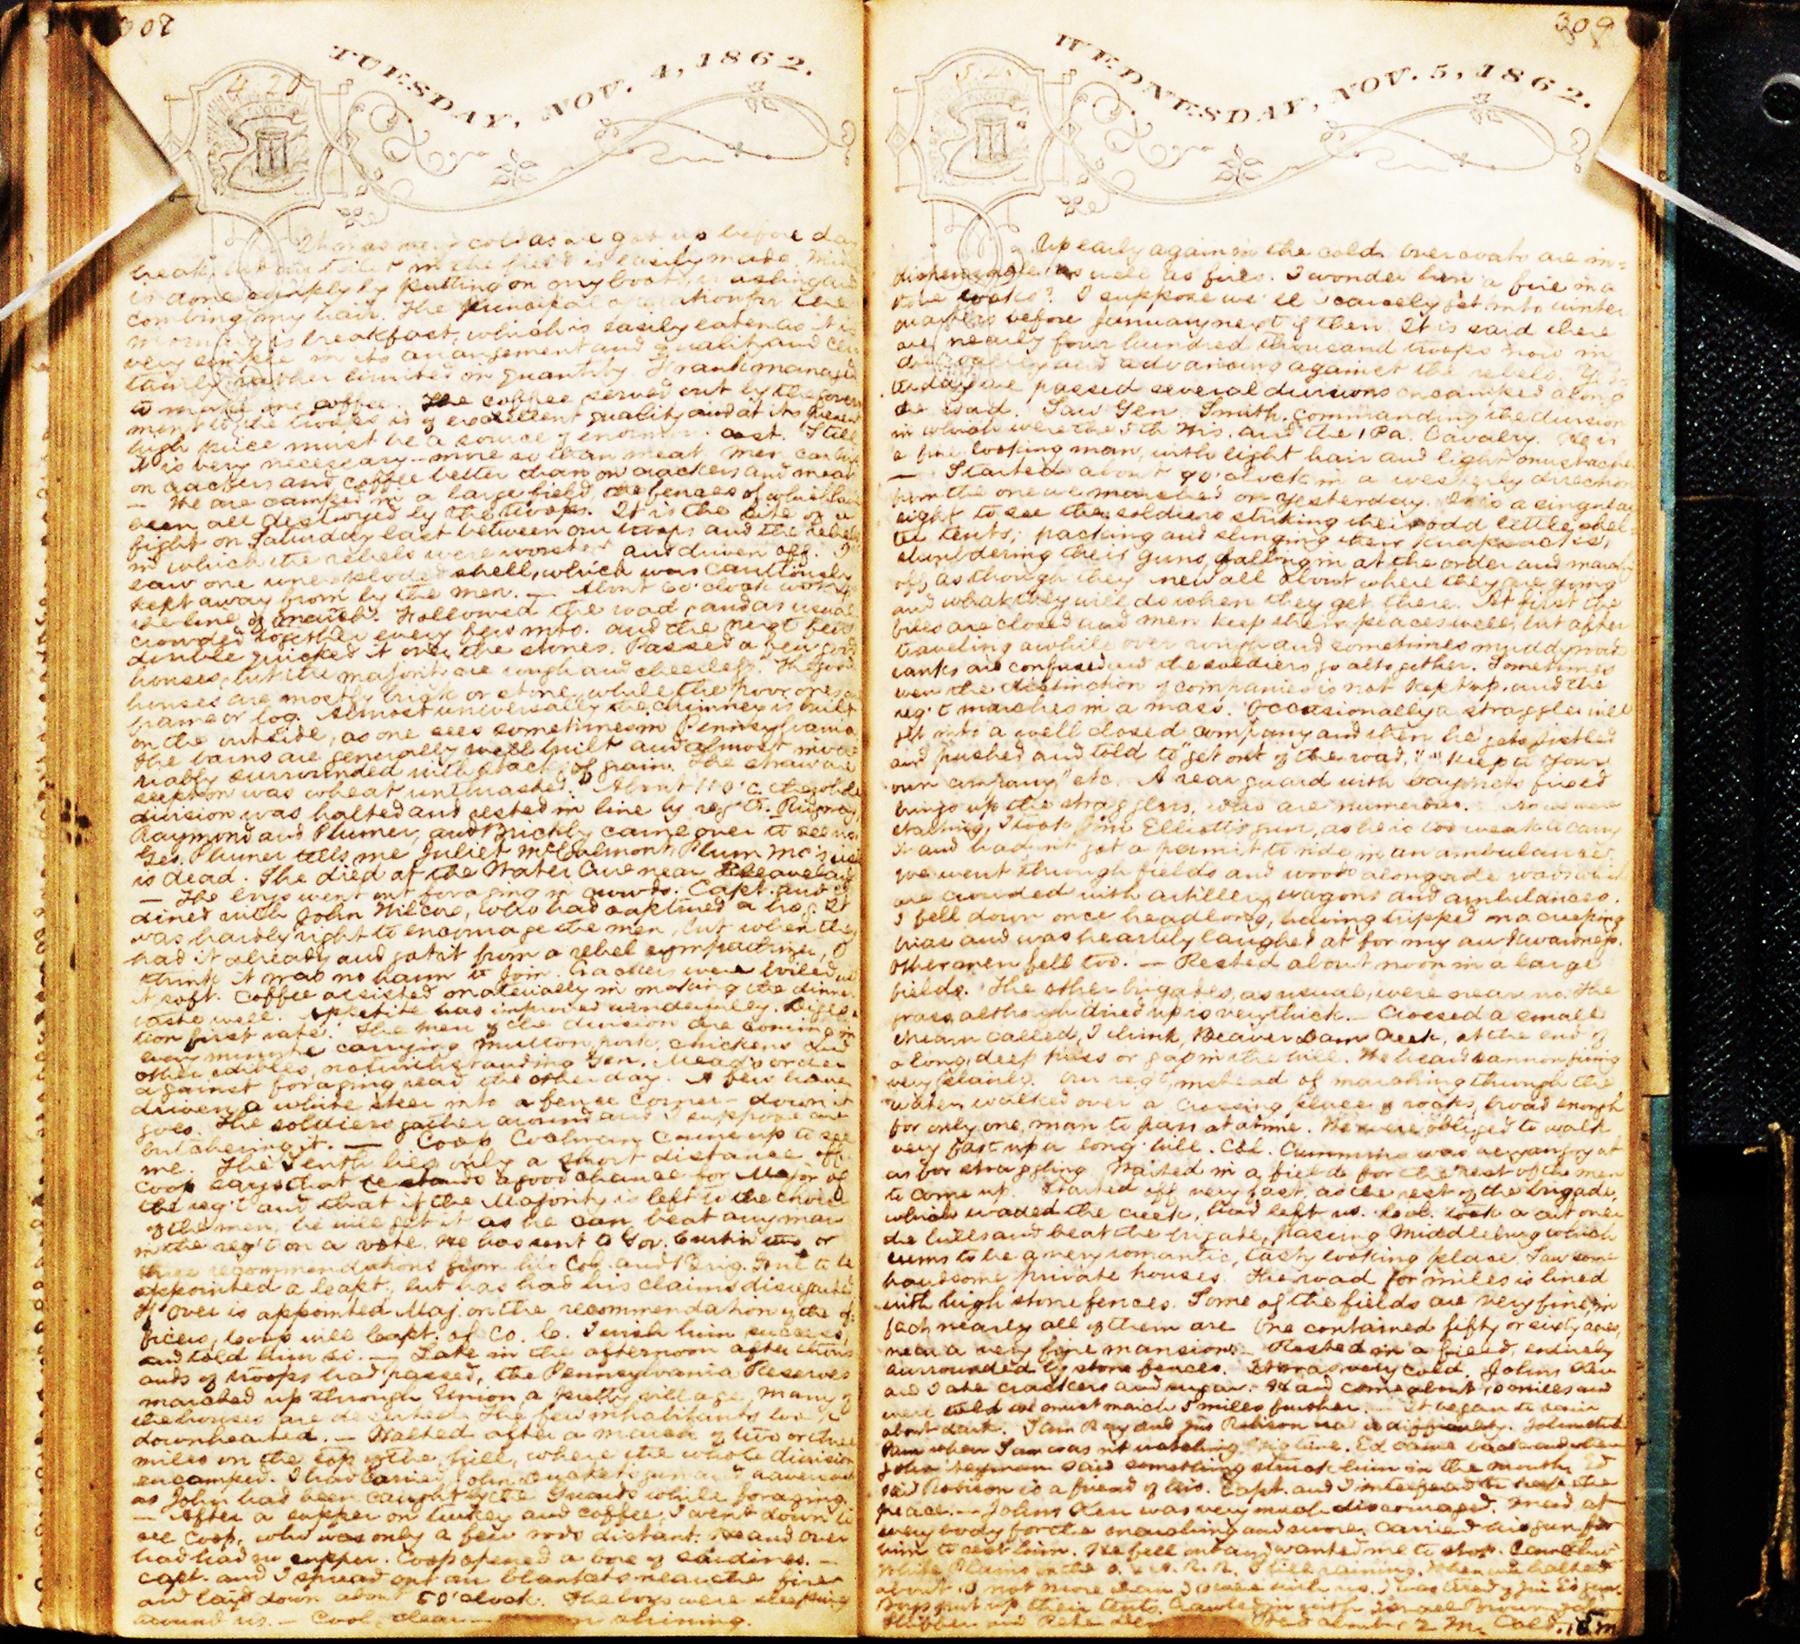 307
TUESDAY, NOV. 4, 1862.
It was very cold as we got up before day
break, but our toilet in the field is easily made. Mine
is done simply by putting on my boots, washing and
combing my hair. The principal preparation for the
morning is breakfast, which is easily eaten as it is
very simple in its arrangement and quality and cer
tainly rather limited in quantity. Frank managed
to make me coffee. The coffee served out by the govern
ment to the troops is of excellent quality and at its present
high price must be a source of enormous cost. Still
it is very necessary – more so than meat. Men can live
on crackers and coffee better than on crackers and meat
— We are camped in a large field, the fences of which have
been all destroyed by the troops. It is the site of a
fight on Saturday last between our troops and the rebels
in which the rebels were worsted and driven off. I
saw one unexploded shell, which was cautiously
kept away from by the men. — About 10 o'clock took up
the line of march. Followed the road, and as usual
crowded together every few mts. and the next few
double quicked it over the stones. Passed a few good
houses, but the majority are rough and cheerless. The good
houses are mostly brick or stone, while the poor ones are
frame or log. Almost universally the chimney is built
on the outside, as one sees sometimes in Pennsylvania
The barns are generally well built and almost invar
iably surrounded with stacks of grain. The straw
was wheat unthrashed. About 11 o'c. the whole
division was halted and rested in line by reg'ts.
Raymond and Plumer, and Brickly came over to see us.
Geo. Plumer tells me Juliet McCalmont, Plum Mc's
is dead. She died at the Water Cure near Cleaveland
— The boys went out foraging in crowds. Capt. and I
dined with John Wilcox, who had captured a hog. It
was hardly right to encourage the men, but when they
had it already and got it from a rebel sympathizer, I
think it was no harm to join. Crackers were boiled in
it soft. Coffee assisted materially in making the dinner
taste well. Appetite has improved wonderfully. Diges
tion first rate. The men of the division are coming in
every minute carrying mutton, pork, chickens and
other edibles, notwithstanding Gen. Mead's order
against foraging read the other day. A few have
driven a white steer into a fence corner – down it
goes. The soldiers gather around and I suppose are
butchering it. — Coop Coolman came up to see
me. The Tenth lies only a short distance off.
Coop says that he stands a good chance for Major of
the reg't and that if the Majority is left to the choice
of the men, he will get it as he can beat any man
in the reg't on a vote. He has sent to Gov. Curtin two or
three recommendations from his Col. and Brig. Gen'l to be
appointed a Capt., but has had his claims disregarded.
If Over is appointed Maj. on the recommendation of the of
ficers, Coop will be Capt. of Co. G. I wish him success,
and told him so. — Late in the afternoon after thous
ands of troops had passed, the Pennsylvania Reserves
marched up through Union a pretty village, many of
the houses are deserted. The few inhabitants look
downhearted. — Halted after a march of two or three
miles on the top of the hill, where the whole division
encamped. I had carried John gun and haversack
as John had been caught by the Guards while foraging.
— After a supper on turkey and coffee, I went down to
see Coop, who was only a few rods distant. He and Over
had had no supper. Coop opened a box of sardines. —
Capt. and I spread out our blankets near the fire
and laid down about 8 o'clock. The boys were sleeping
around us. — Cool, clear — moon shining.
309
WEDNESDAY, NOV. 5, 1862.
Up early again in the cold. Overcoats are in=
dispensable as well as fires. I wonder how a fire in a
stove looks? I suppose we'll scarcely get into winter
quarters before January next if then. It is said there
are nearly four hundred thousand troops now in
and advancing against the rebels. Yes
terday we passed several divisions encamped along
the road. Saw Gen. Smith, commanding the division
in which were the 5th Wis. and the 1 Pa. Cavalry. He is
a fine looking man, with light hair and light moustache
— Started about 9 o'clock in a westerly direction
from the one we marched on yesterday. It is a singular
sight to see the soldiers striking their odd little shel-
ter tents, packing and slinging their knapsacks,
shouldering their guns, falling in at the order and march
off, as though they knew all about where they are going
and what they will do when they get there. At first the
files are closed and men keep their places well, but after
traveling awhile over rough and sometimes muddy roads
ranks are confused and the soldiers go altogether. Sometimes
even the distinction of companies is not kept up, and the
reg't marches in a mass. Occasionally a straggler will
get into a well closed company and then he gets jostled
and pushed and told to "get out of the road," "Keep to your
own company," etc. A rear guard with bayonets fixed
brings up the stragglers, who are numerous. As we were
starting, I took Jim Elliott's gun, as he is too weak to carry
it and hadn't got a permit to ride in an ambulance.
We went through fields and woods alongside roads which
are crowded with artillery, wagons and ambulances.
I fell down once headlong, having tripped on a creeping
briar and was heartily laughed at for my awkwardness.
Other men fell too. — Rested about noon in a large
field. The other brigades, as usual, were near us. The
grass, although dried up is very thick. — Crossed a small
stream called, I think, Beaver Dam Creek, at the end of
a long, deep pass or gap in the hill. We heard cannon firing
very plainly. Our reg't, instead of marching through the
water, walked over a crossing place of rocks, broad enough
for only one man to pass at a time. We were obliged to walk
very fast up a long hill. Col. Cummins was as angry at
us for straggling. Waited in a field for the rest of the men
to come up. Started off very fast, as the rest of the brigade,
which waded the creek, had left us. Col. took a cut over
the hills and beat the brigade, passing Middleburg which
seems to be a very romantic, tasty looking place. Saw some
handsome private houses. The road for miles is lined
with high stone fences. Some of the fields are very fine, in
fact nearly all of them are. One contained fifty or sixty acres,
near a very fine mansion. — Rested in a field, entirely
surrounded by stone fences. It was very cold. Johns
and I ate crackers and sugar. Had come about 10 miles and
were told we must march 5 miles further. — It began to rain
about dark. Sam Ray and Jim Robison had a difficulty. John struck
Sam when Sam was n't watching. Ed came back and when
John Heyman said something struck him in the mouth. Ed
said Robison is a friend of his. Capt. and I interfered to keep the
peace. — Johns was very much discouraged. Mad at
everybody for the marching and swore. Carried his gun for
him to rest him. He fell out and wanted me to stop. Came thro'
White Plains on the R. R. Still raining. When we halted
about not more than were with us. I was tired
Boys put up their tents. Crawled in with
and Pete 2 m. Cold.